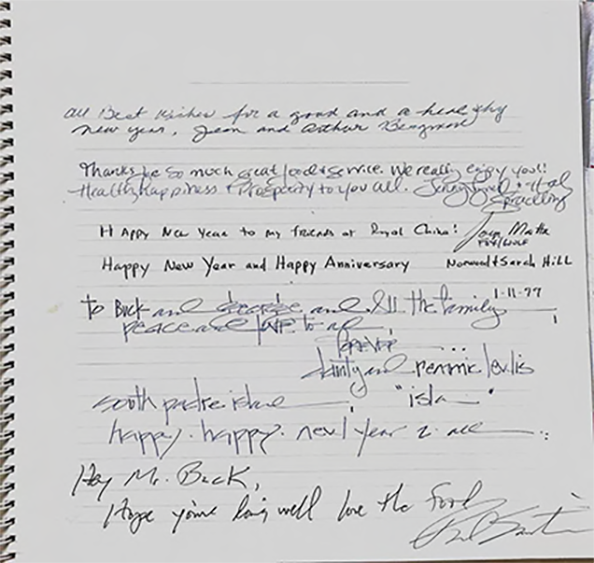 All Best Wishes for a good and a healthy
new year, Jean and Arthur
Thanks so much great food & service. We really enjoy you!!
Health, happiness & Prosperity to you all.
Happy New Year to my friends at Royal China!
Happy New Year and Happy Anniversary Norwood & Sarah Hill
to Buck and and All the family 1-11-77
peace and love to all
FOREVER ...
dainty and
south padre island "isla"
happy. happy. new year 2 all
Hey Mr. Buck,
Hope you're doing well love the food